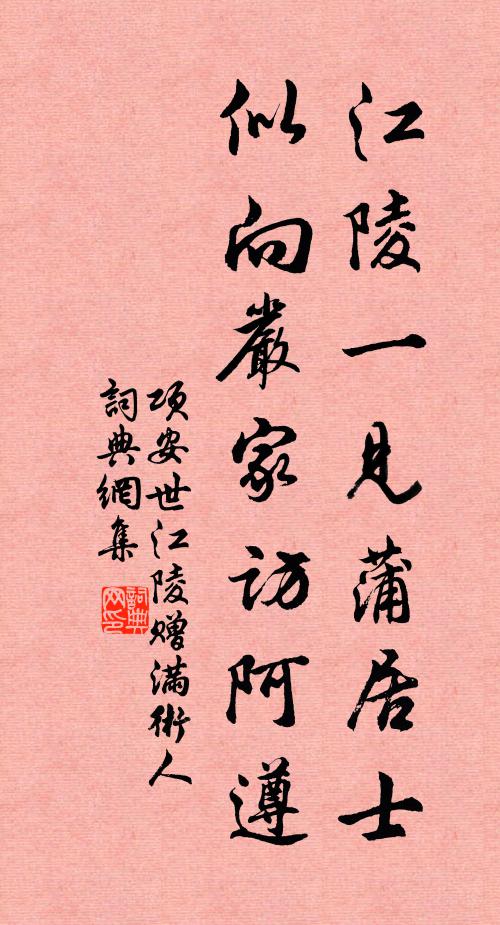 江陵一見蒲居士
似向嚴家訪阿遵
項安世江陵贈滿術人
詞典網集
詞典网印